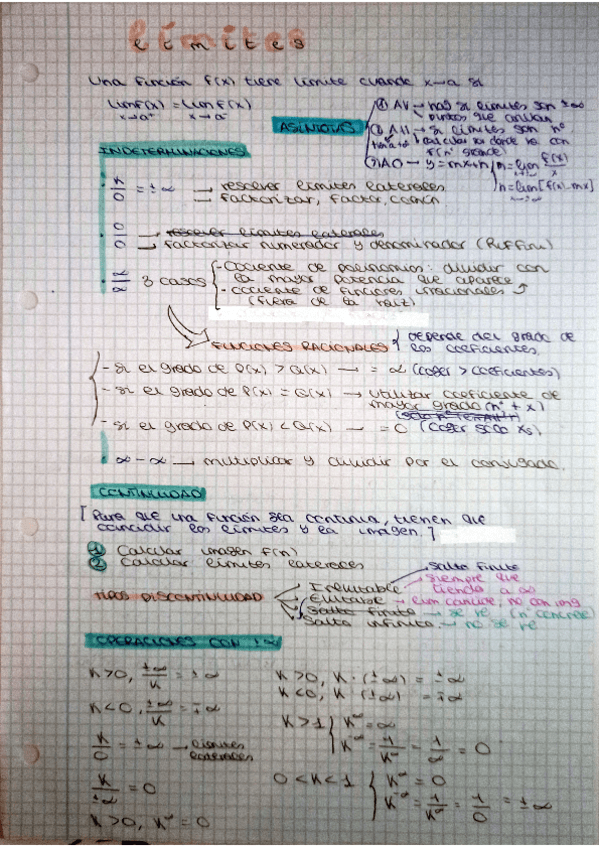 límites
Una función f(x) tiene límite cuando x→a si
lim f(x) = lim f(x)
x→a⁺ x→a⁻
ASÍNTOTAS
① AV → has si límites son ±∞
puntos que anulan
② AH → si límites son nº
calcular
③ AO → y = mx+n
m = lim f(x)/x
n = lim [f(x) - mx]
INDETERMINACIONES
· K/0 = ±∞ → resolver límites laterales
→ factorizar, factor común
· 0/0 → resolver límites laterales
→ factorizar numerador y denominador (Ruffini)
· ∞/∞ 3 casos
- Cociente de polinomios: dividir con
la mayor potencia que aparece
- cociente de funciones irracionales
(fuera de la raíz)
FUNCIONES RACIONALES
depende del grado de
los coeficientes
- Si el grado de P(x) > Q(x) → = ∞ (coger > coeficientes)
- Si el grado de P(x) = Q(x) → utilizar coeficiente de
mayor grado (nº + x)
- Si el grado de P(x) < Q(x) → = 0 (coger solo xs)
· ∞ - ∞ → multiplicar y dividir por el conjugado.
CONTINUIDAD
[Para que una función sea continua, tienen que
coincidir los límites y la imagen.]
① Calcular imagen f(n)
② Calcular límites laterales
TIPOS DISCONTINUIDAD
Inevitable
Salto finito
Siempre que
tienda a ∞
Evitable → lim coincide, no con img
Salto finito → se ve (nº concreto)
Salto infinito → no se ve
OPERACIONES CON ±∞
K>0, ±∞/K = ±∞
K>0, K · (±∞) = ±∞
K<0, K (±∞) = ∓∞
K<0, ±∞/K = ∓∞
K>1 { K^∞ = ∞
K^-∞ = 1/K^∞ = 1/∞ = 0
K/0 = ±∞ → límites
laterales
K/±∞ = 0
0<K<1 { K^∞ = 0
K^-∞ = 1/K^∞ = 1/0 = ±∞
K>0, K^∞ = 0